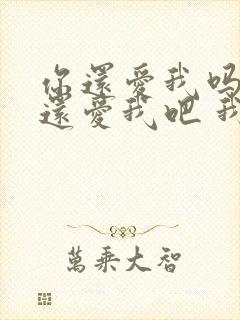 你還愛我嗎
還愛我吧 我
萬乘大智